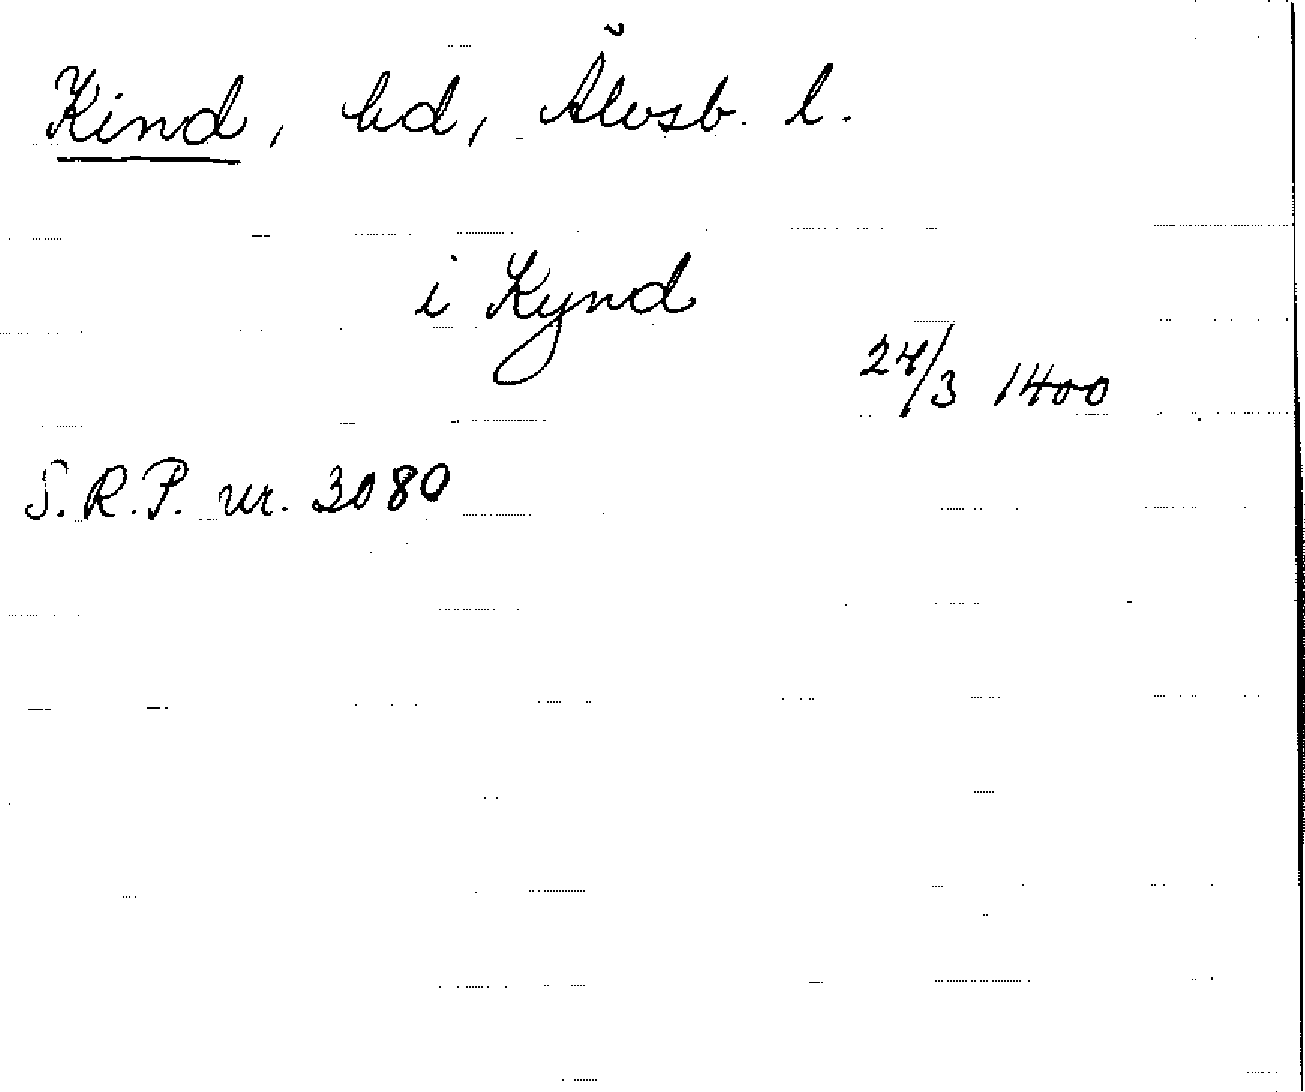 Kind, hd, Älvsb. l.
i Kynd
24/3 1400
S.R.P. nr. 3080